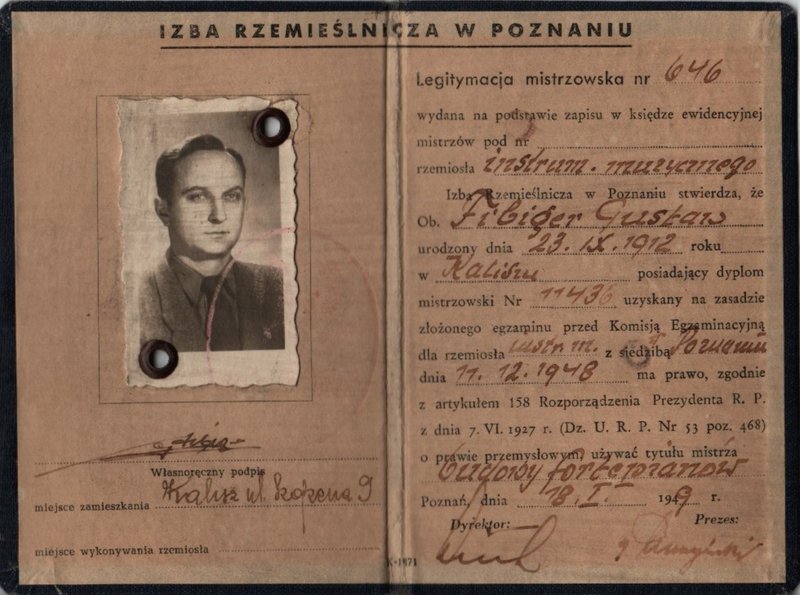 IZBA RZEMIEŚLNICZA W POZNANIU
Własnoręczny podpis
miejsce zamieszkania Kalisz ul. Szopena 9
miejsce wykonywania rzemiosła
Legitymacja mistrzowska nr 646
wydana na podstawie zapisu w księdze ewidencyjnej
mistrzów pod nr
rzemiosła instrum. muzycznego
Izba Rzemieślnicza w Poznaniu stwierdza, że
Ob. Fibiger Gustaw
urodzony dnia 23. IX. 1912 roku
w Kaliszu posiadający dyplom
mistrzowski Nr 11436 uzyskany na zasadzie
złożonego egzaminu przed Komisją Egzaminacyjną
dla rzemiosła instr. m. z siedzibą Poznaniu
dnia 11. 12. 1948 ma prawo, zgodnie
z artykułem 158 Rozporządzenia Prezydenta R. P.
z dnia 7. VI. 1927 r. (Dz. U. R. P. Nr 53 poz. 468)
o prawie przemysłowym, używać tytułu mistrza
budowy fortepianów
Poznań, dnia 18. I. 1949 r.
Dyrektor: Prezes:
K-1871